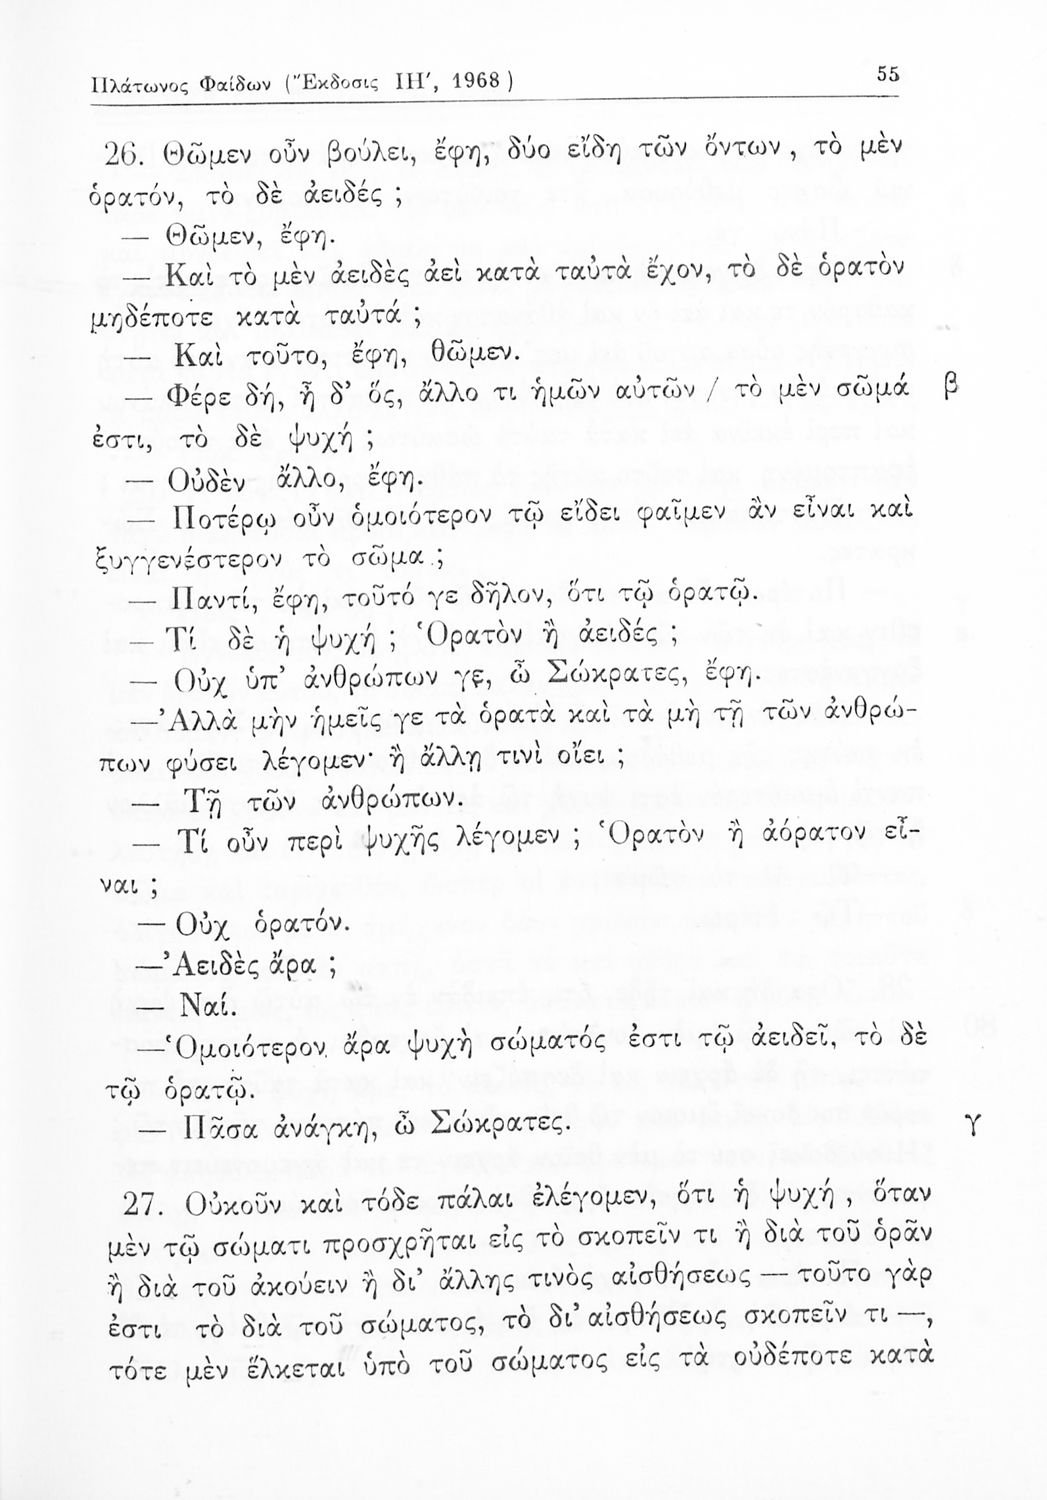 Πλάτωνος Φαίδων (Ἔκδοσις ΙΗ′, 1968)
55
26. Θῶμεν οὖν βούλει, ἔφη, δύο εἴδη τῶν ὄντων, τὸ μὲν
ὁρατόν, τὸ δὲ ἀειδές ;
— Θῶμεν, ἔφη.
— Καὶ τὸ μὲν ἀειδὲς ἀεὶ κατὰ ταὐτὰ ἔχον, τὸ δὲ ὁρατὸν
μηδέποτε κατὰ ταὐτά ;
— Καὶ τοῦτο, ἔφη, θῶμεν.
— Φέρε δή, ἦ δ’ ὅς, ἄλλο τι ἡμῶν αὐτῶν / τὸ μὲν σῶμά β
ἐστι, τὸ δὲ ψυχή ;
— Οὐδὲν ἄλλο, ἔφη.
— Ποτέρῳ οὖν ὁμοιότερον τῷ εἴδει φαῖμεν ἂν εἶναι καὶ
ξυγγενέστερον τὸ σῶμα ;
— Παντί, ἔφη, τοῦτό γε δῆλον, ὅτι τῷ ὁρατῷ.
— Τί δὲ ἡ ψυχή ; Ὁρατὸν ἢ ἀειδές ;
— Οὐχ ὑπ’ ἀνθρώπων γε, ὦ Σώκρατες, ἔφη.
—Ἀλλὰ μὴν ἡμεῖς γε τὰ ὁρατὰ καὶ τὰ μὴ τῇ τῶν ἀνθρώ-
πων φύσει λέγομεν· ἢ ἄλλῃ τινὶ οἴει ;
— Τῇ τῶν ἀνθρώπων.
— Τί οὖν περὶ ψυχῆς λέγομεν ; Ὁρατὸν ἢ ἀόρατον εἶ-
ναι ;
— Οὐχ ὁρατόν.
—Ἀειδὲς ἄρα ;
— Ναί.
—Ὁμοιότερον ἄρα ψυχὴ σώματός ἐστι τῷ ἀειδεῖ, τὸ δὲ
τῷ ὁρατῷ.
— Πᾶσα ἀνάγκη, ὦ Σώκρατες. γ
27. Οὐκοῦν καὶ τόδε πάλαι ἐλέγομεν, ὅτι ἡ ψυχή, ὅταν
μὲν τῷ σώματι προσχρῆται εἰς τὸ σκοπεῖν τι ἢ διὰ τοῦ ὁρᾶν
ἢ διὰ τοῦ ἀκούειν ἢ δι’ ἄλλης τινὸς αἰσθήσεως — τοῦτο γάρ
ἐστι τὸ διὰ τοῦ σώματος, τὸ δι’ αἰσθήσεως σκοπεῖν τι —,
τότε μὲν ἕλκεται ὑπὸ τοῦ σώματος εἰς τὰ οὐδέποτε κατὰ